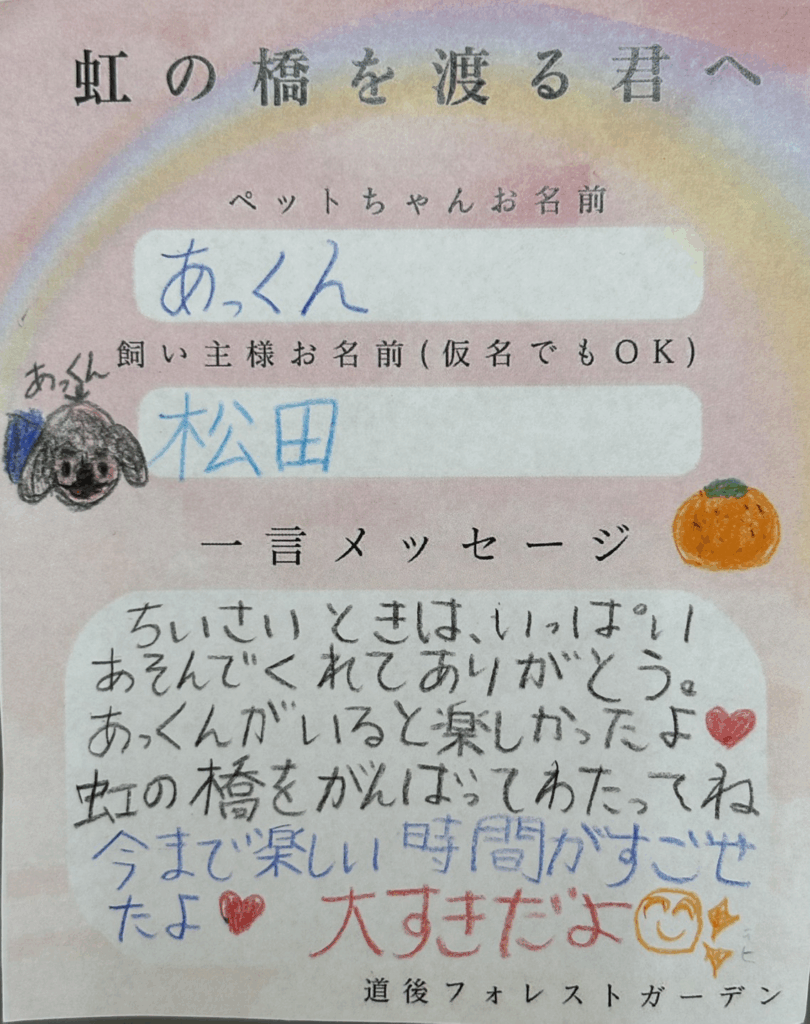 虹の橋を渡る君へ
ペットちゃんお名前
あっくん
飼い主様お名前(仮名でもOK)
あっくん
松田
一言メッセージ
ちいさいときは、いっぱい
あそんでくれてありがとう。
あっくんがいると楽しかったよ❤
虹の橋をがんばってわたってね
今まで楽しい時間がすごせ
たよ❤ 大すきだよ
道後フォレストガーデン